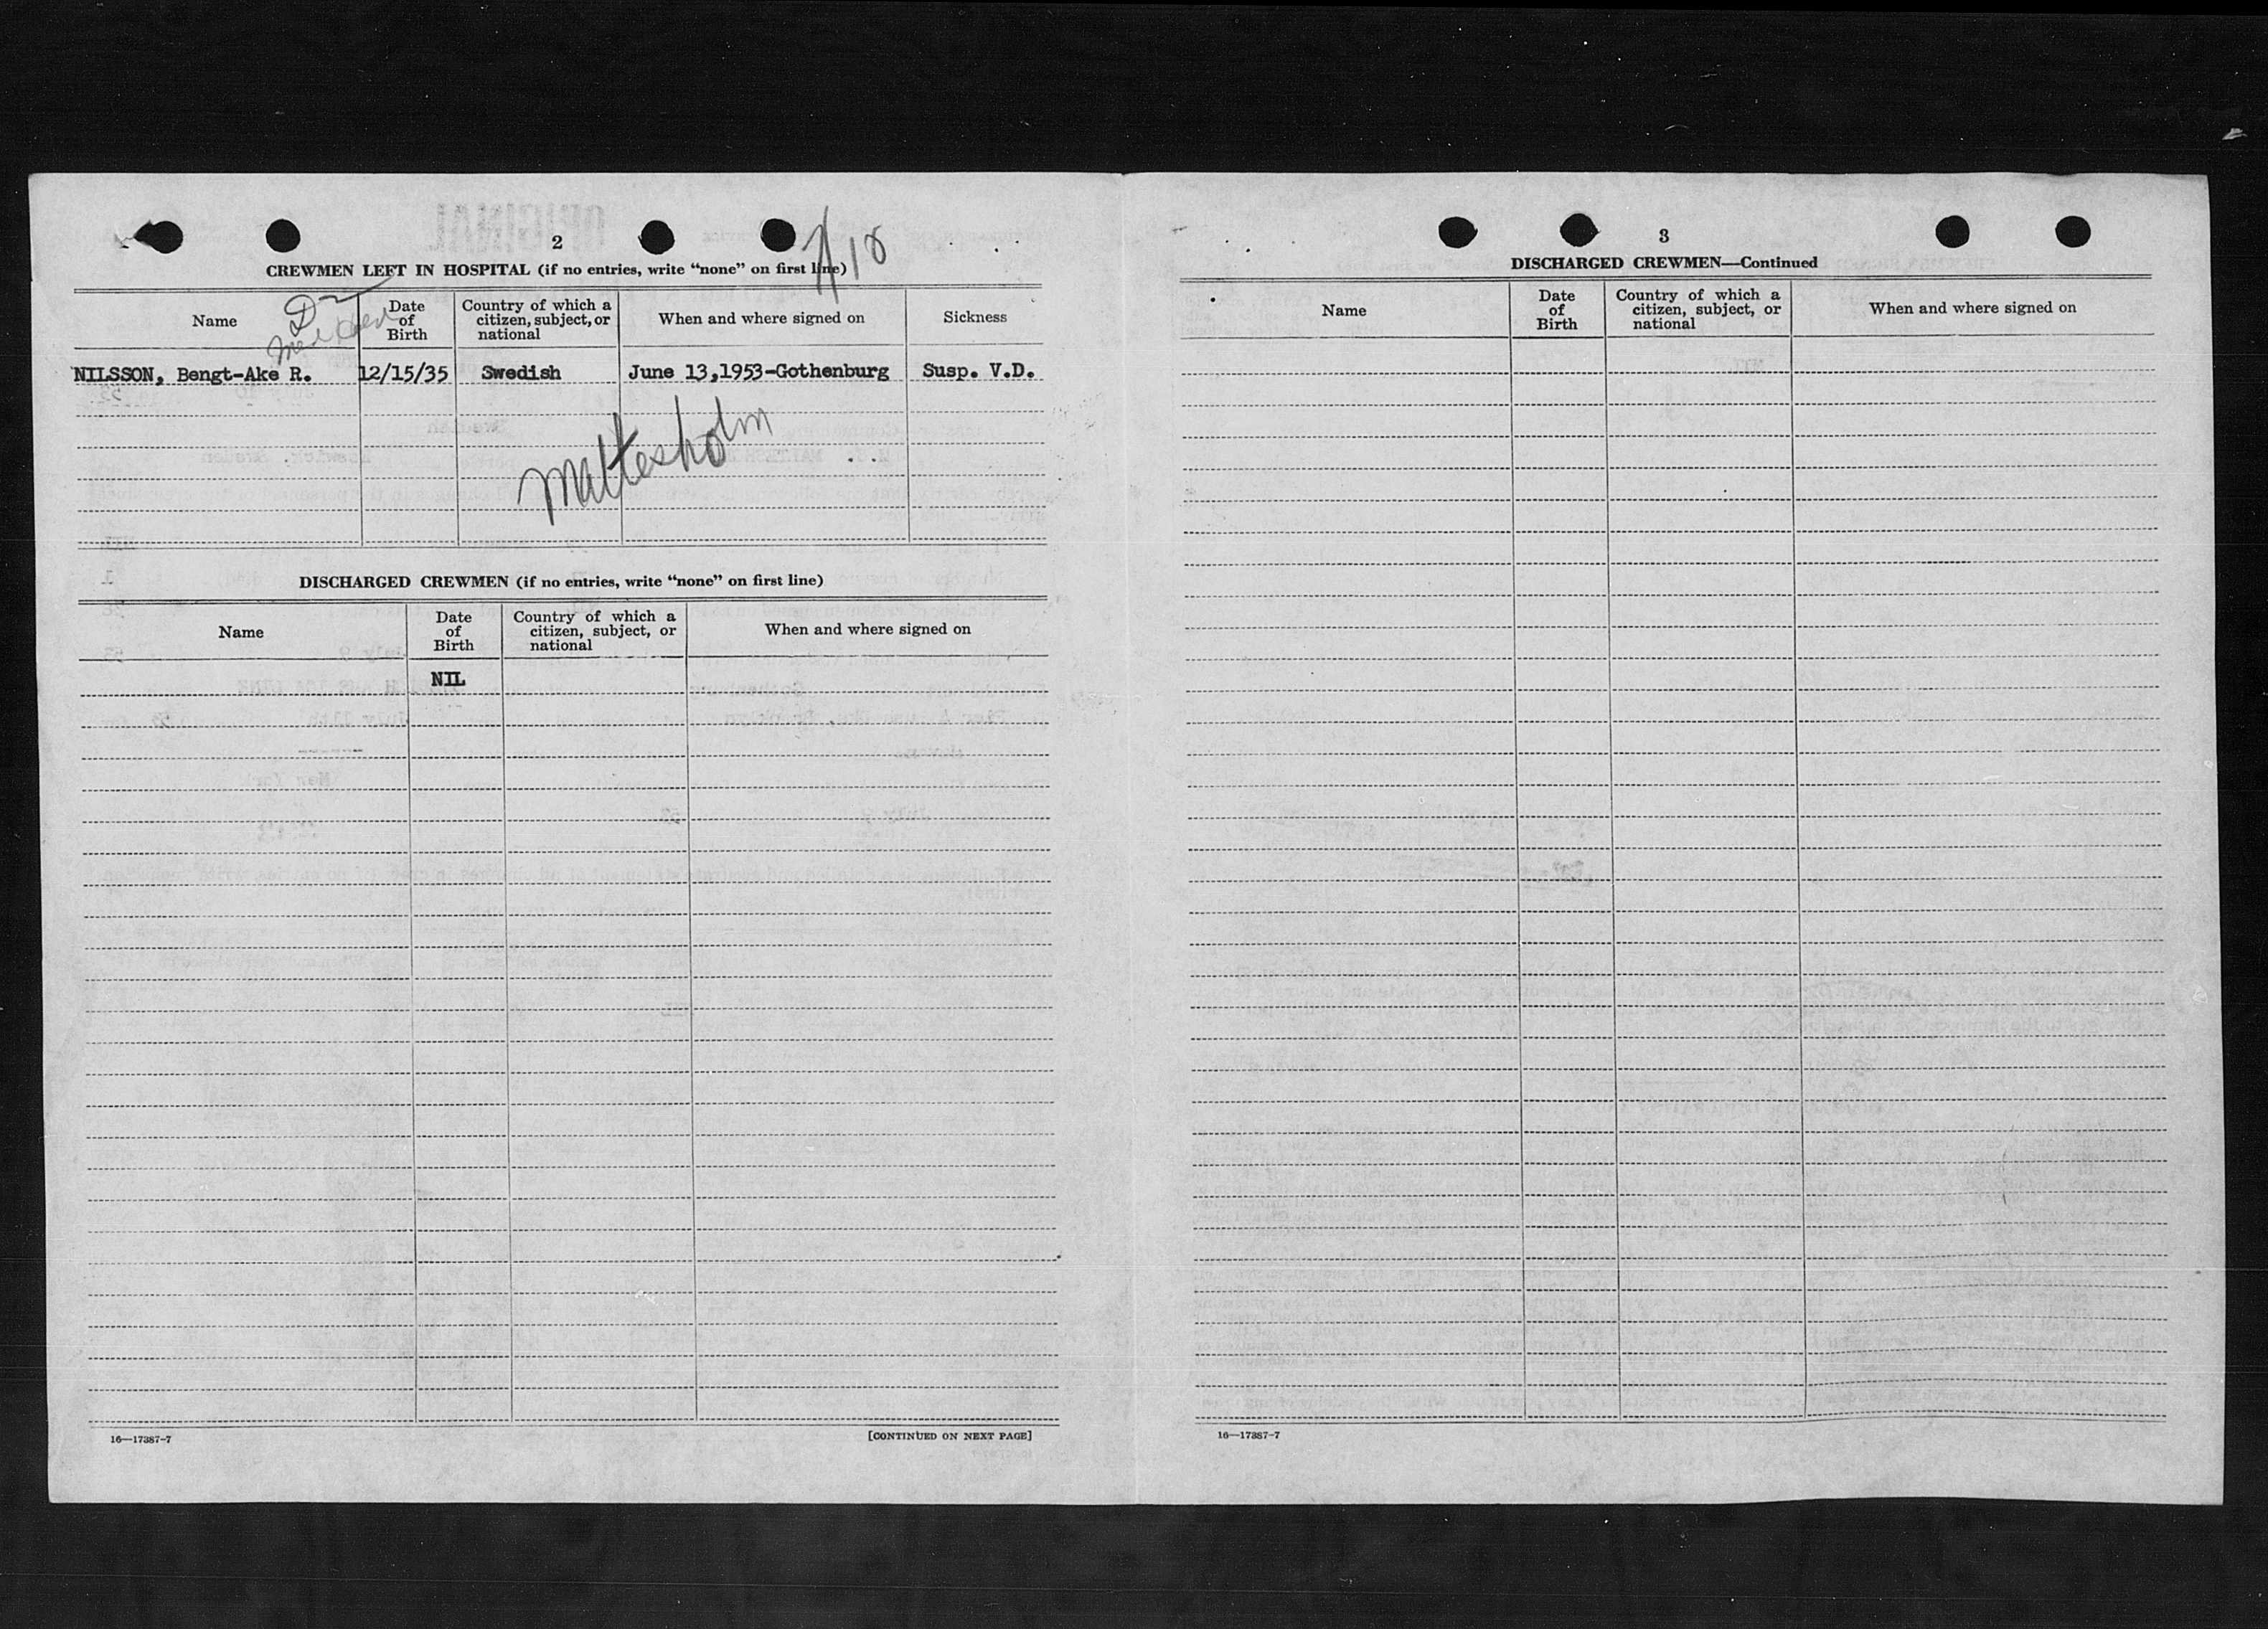 2
7/18
CREWMEN LEFT IN HOSPITAL (if no entries, write "none" on first line)
Name
Date of Birth
Country of which a citizen, subject, or national
When and where signed on
Sickness
NILSSON, Bengt-Ake R. 12/15/35 Swedish June 13,1953-Gothenburg Susp. V.D.
Maltesholm
DISCHARGED CREWMEN (if no entries, write "none" on first line)
Name
Date of Birth
Country of which a citizen, subject, or national
When and where signed on
NIL
16—17387-7
[CONTINUED ON NEXT PAGE]
3
DISCHARGED CREWMEN—Continued
Name
Date of Birth
Country of which a citizen, subject, or national
When and where signed on
16—17387-7